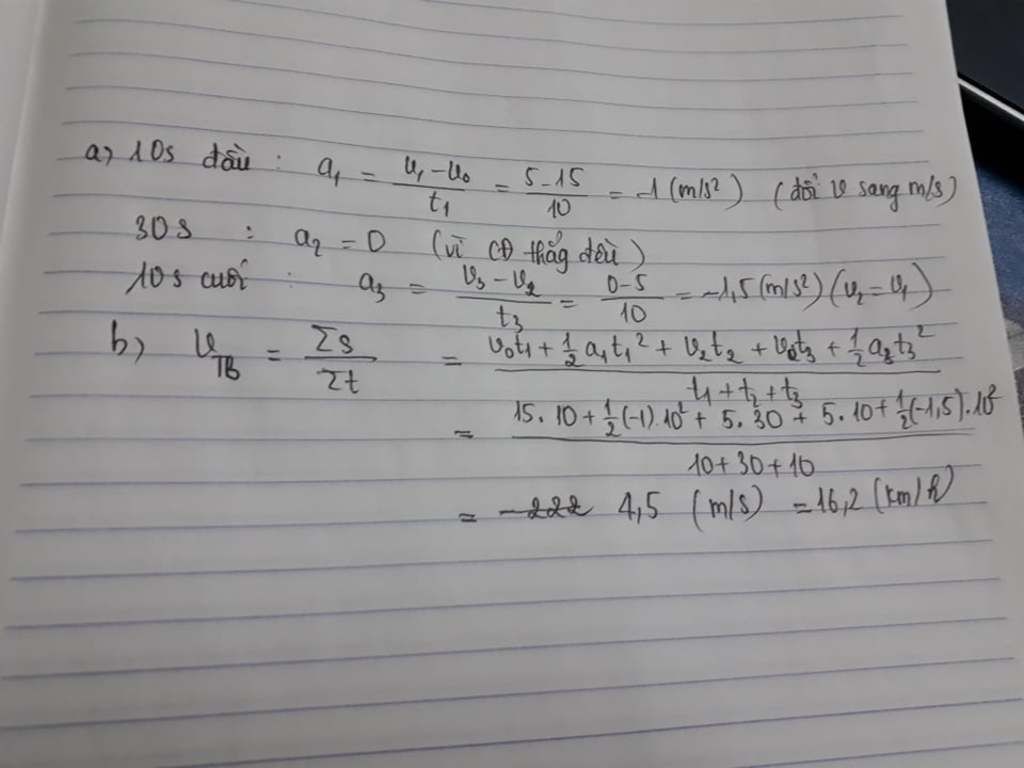 a) 10s đầu : a₁ = (v₁ - v₀)/t₁ = (5 - 15)/10 = -1 (m/s²) (đổi v sang m/s)
30s : a₂ = 0 (vì CĐ thẳg đều)
10s cuối : a₃ = (v₃ - v₂)/t₃ = (0 - 5)/10 = -1,5 (m/s²) (v₂ = v₁)
b) v_TB = Σs/Σt = (v₀t₁ + 1/2 a₁t₁² + v₂t₂ + v₀t₃ + 1/2 a₃t₃²)/(t₁ + t₂ + t₃)
= (15.10 + 1/2(-1).10² + 5.30 + 5.10 + 1/2(-1,5).10²)/(10 + 30 + 10)
= 4,5 (m/s) = 16,2 (km/h)